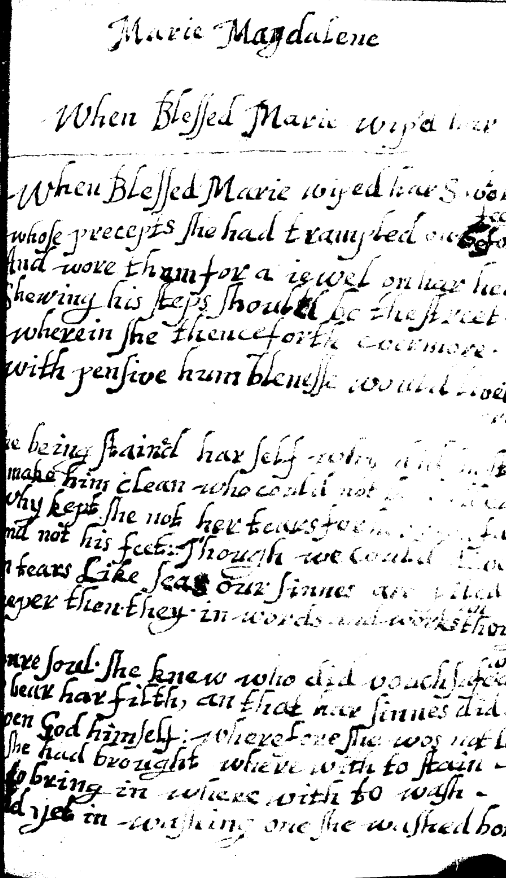 Marie Magdalene
When Blessed Marie wip'd har
When Blessed Marie wiped har S
whose precepts she had trampled on befo
And wore them for a iewel on har hea
Shewing his steps should be the street
wherein she thenceforth evermore
with pensive humblenesse would live
he being stain'd har self why did
make him clean who could not
Why kept she not her tears for
nd not his feet: Though we could
n tears Like seas our sinnes are piled
eeper then they in words and works
eare soul she knew who did vouchsafe
bear har filth, an that har sinnes did
pen God himself: wherefore she was not
she had brought where with to stain
to bring in where with to wash
d yet in washing one she washed bo